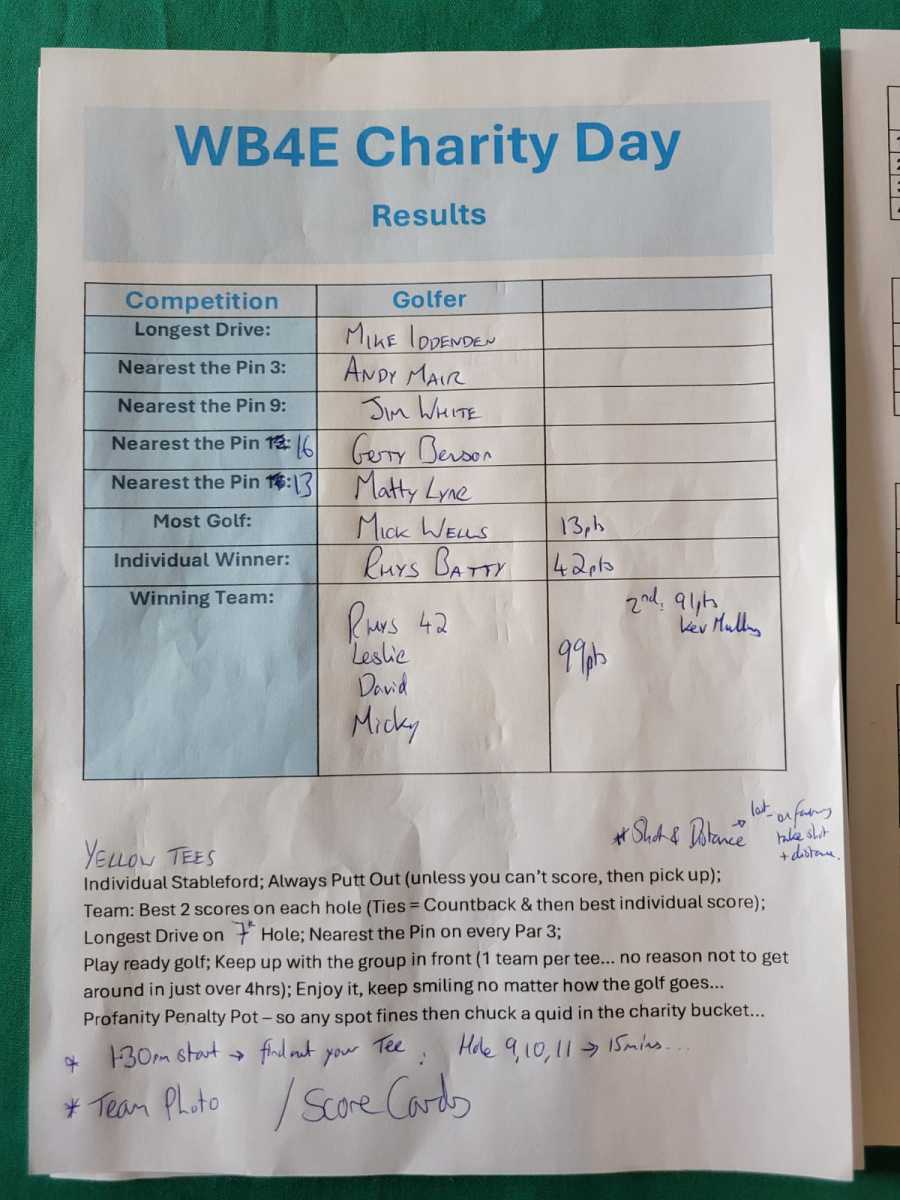 WB4E Charity Day
Results
Competition Golfer
Longest Drive: MIKE IDDENDEN
Nearest the Pin 3: ANDY MAIR
Nearest the Pin 9: JIM WHITE
Nearest the Pin 16 Gerry Benson
Nearest the Pin 13 Matty Lyne
Most Golf: MICK WELLS 13pts
Individual Winner: RHYS BATTY 42pts
Winning Team: 2nd: 91pts
Kev
RHYS 42
Leslie 99pts
David
Micky
* Shot & Distance → lost
take shot
+ distance.
YELLOW TEES
Individual Stableford; Always Putt Out (unless you can't score, then pick up);
Team: Best 2 scores on each hole (Ties = Countback & then best individual score);
Longest Drive on 7th Hole; Nearest the Pin on every Par 3;
Play ready golf; Keep up with the group in front (1 team per tee... no reason not to get
around in just over 4hrs); Enjoy it, keep smiling no matter how the golf goes...
Profanity Penalty Pot – so any spot fines then chuck a quid in the charity bucket...
* 1-30pm start → find out your Tee; Hole 9,10,11 → 15mins...
* Team Photo / Score Cards